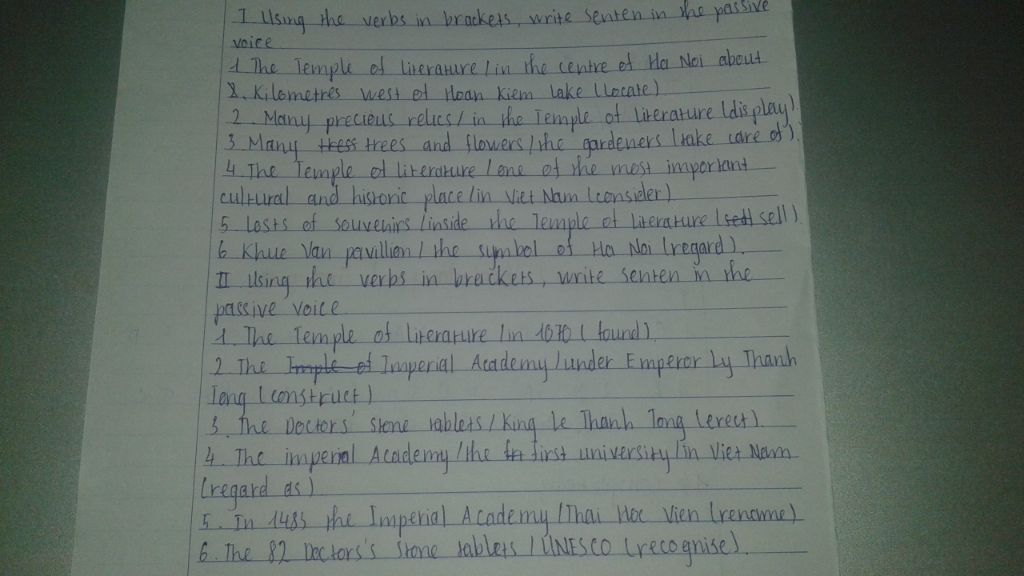 I Using the verbs in brackets, write senten in the passive
voice
1 The Temple of literature / in the centre of Ha Noi about
2. Kilometres west of Hoan Kiem lake (locate)
2. Many precious relics / in the Temple of literature (display).
3 Many tress trees and flowers / the gardeners (take care of).
4. The Temple of literature / one of the most important
cultural and historic place / in Viet Nam (consider)
5 Losts of souvenirs / inside the Temple of literature (sell sell)
6 Khue Van pavillion / the symbol of Ha Noi (regard).
II Using the verbs in brackets, write senten in the
passive voice
1. The Temple of literature / in 1070 ( found).
2 The Imple of Imperial Academy / under Emperor Ly Thanh
Tong (construct)
3. The Doctors' stone tablets / King Le Thanh Tong (erect).
4. The imperial Academy / the first university / in Viet Nam
(regard as)
5. In 1483 the Imperial Academy / Thai Hoc Vien (rename)
6. The 82 Doctors's stone tablets / UNESCO (recognise).